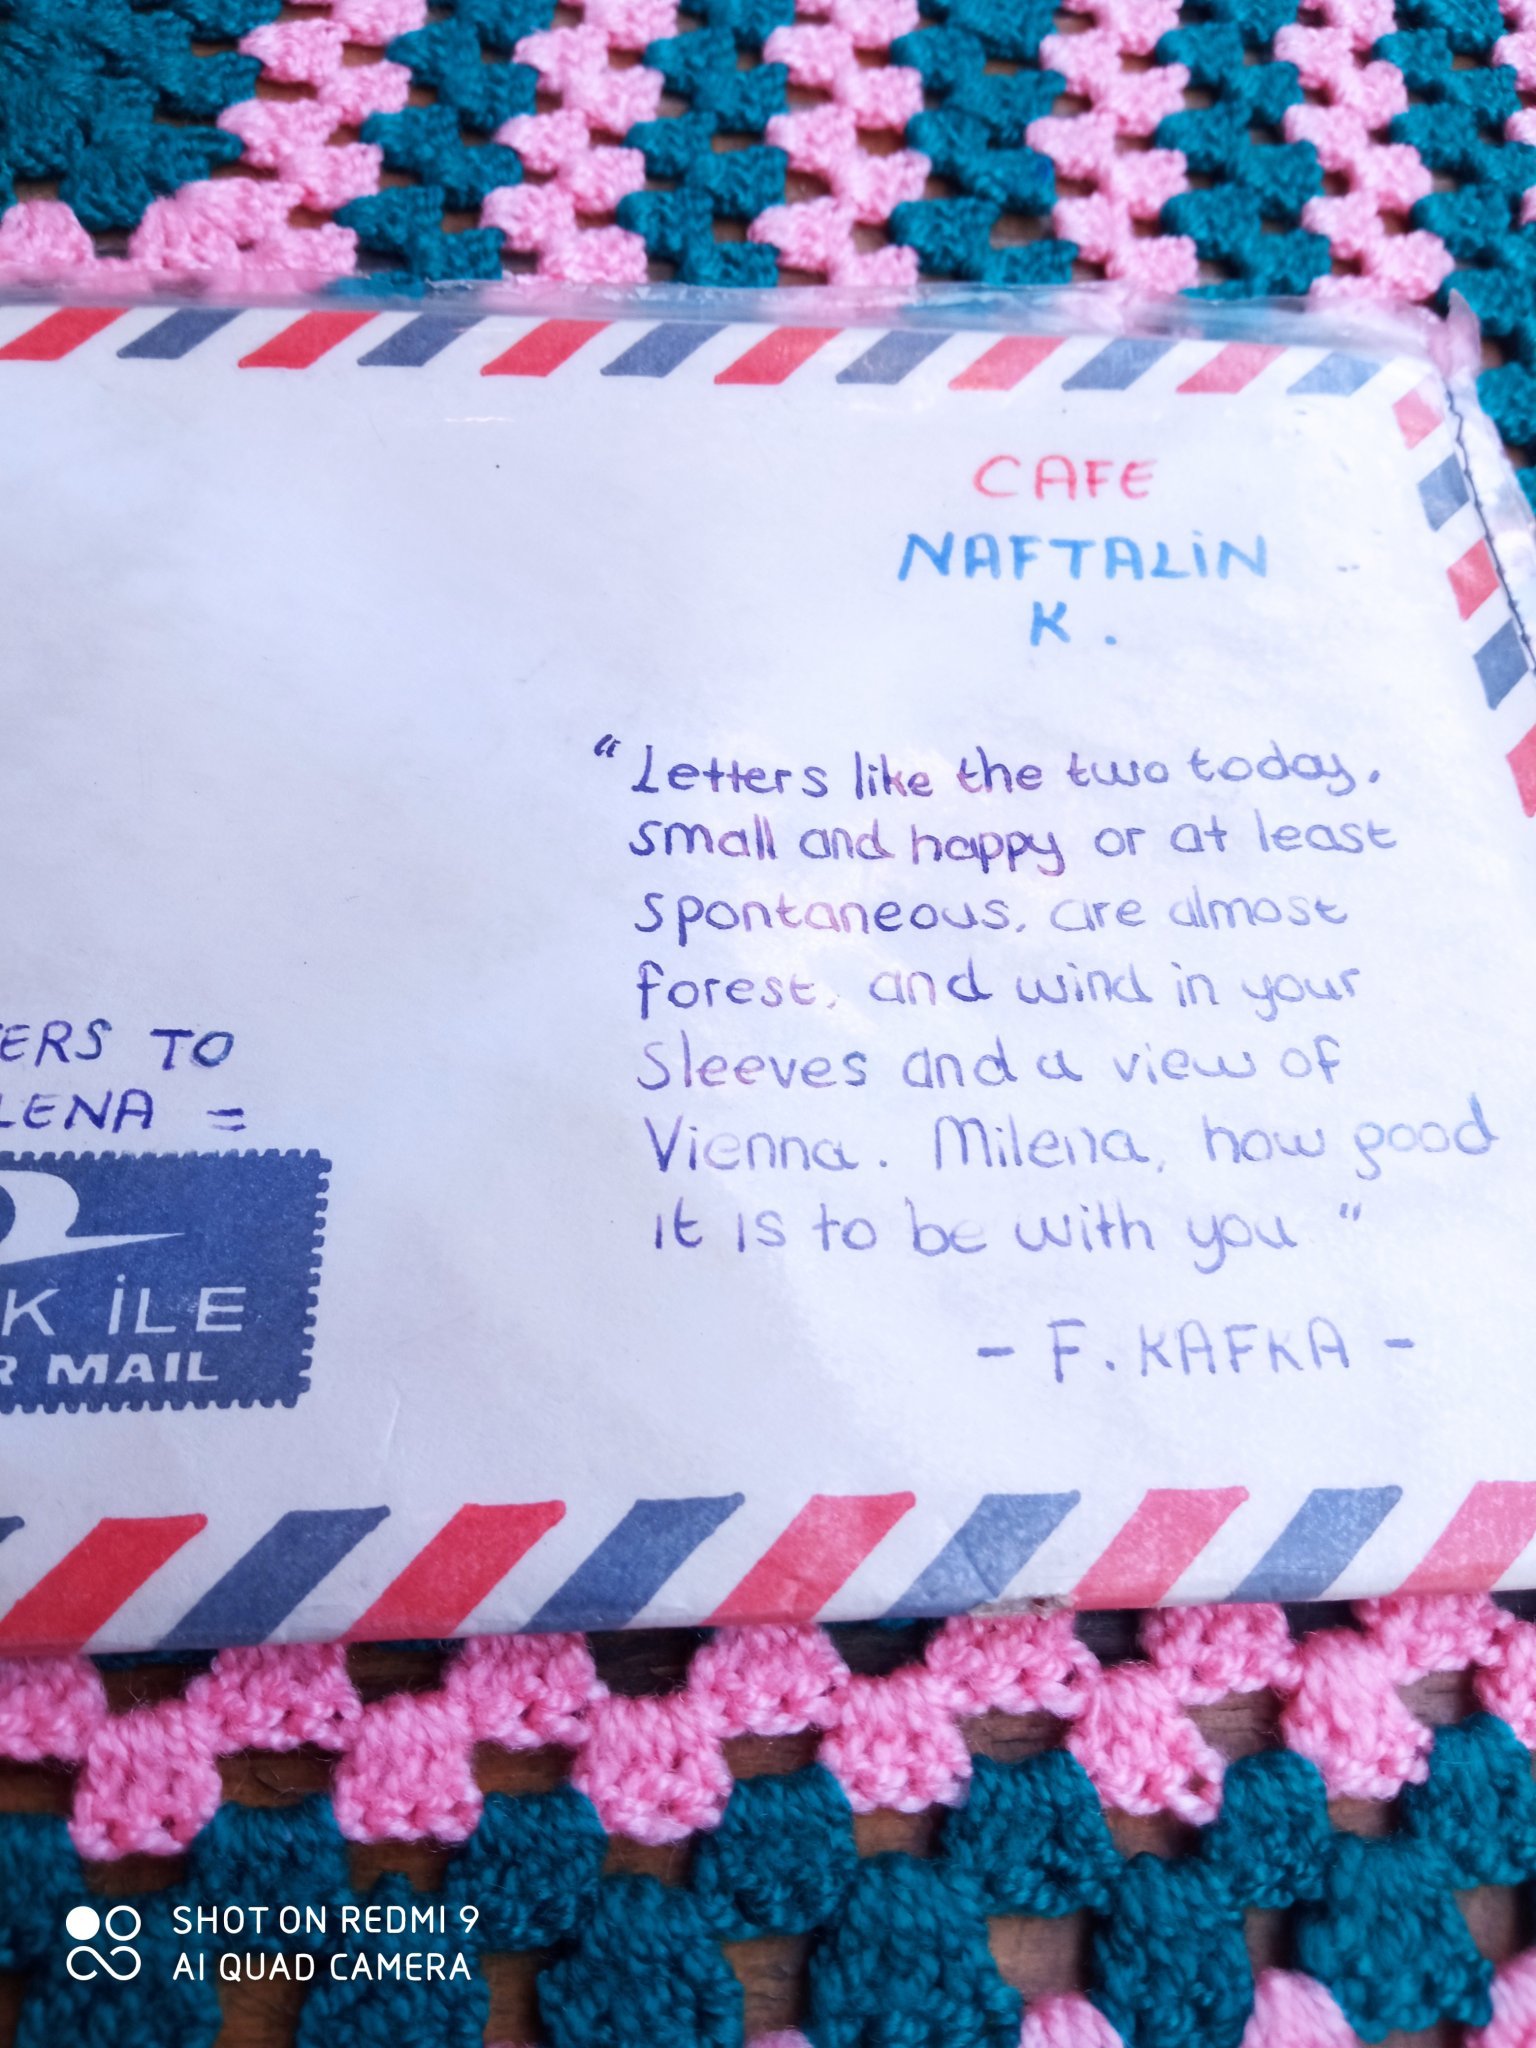 CAFE
NAFTALİN
K.
"Letters like the two today,
small and happy or at least
spontaneous, are almost
forest, and wind in your
sleeves and a view of
Vienna. Milena, how good
it is to be with you"
- F. KAFKA -
ERS TO
LENA =
K İLE
R MAIL
SHOT ON REDMI 9
AI QUAD CAMERA